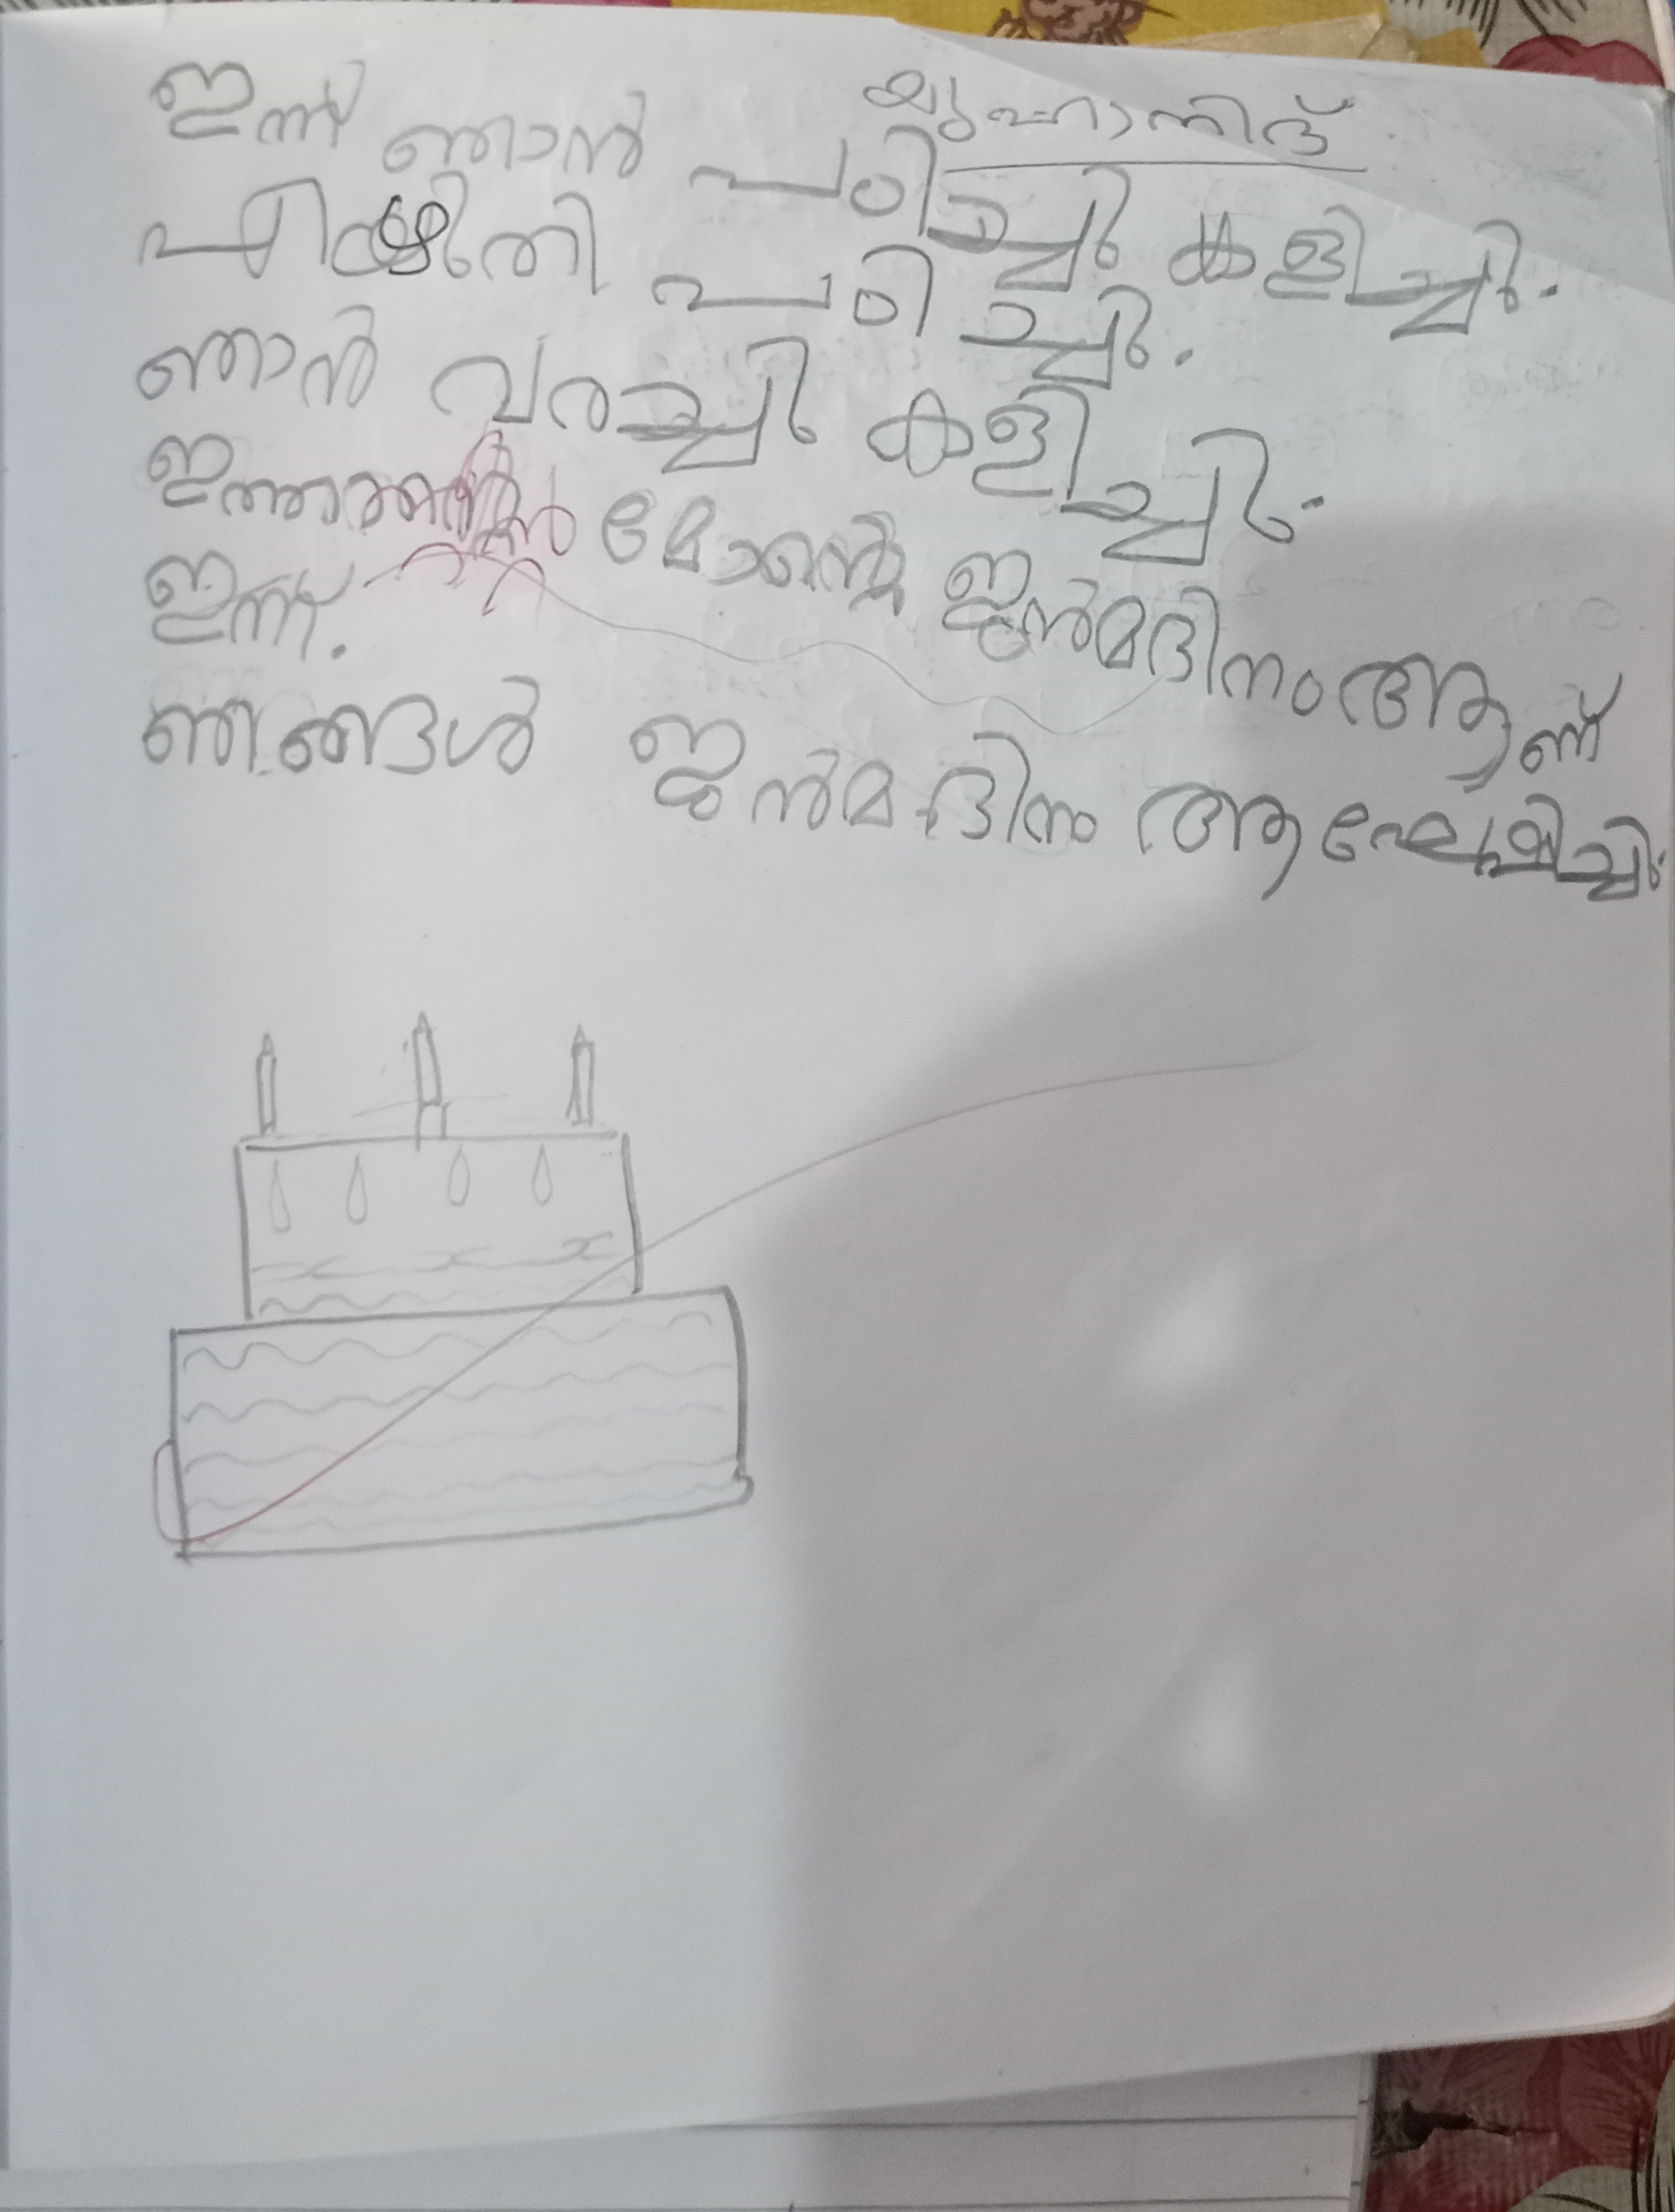 യുഹാനിദ്
ഇന്ന് ഞാൻ പഠിച്ചു കളിച്ചു.
എഴുതി പഠിച്ചു.
ഞാൻ വരച്ചു കളിച്ചു.
മോന്റെ ജൻമദിനം ആണ്
ഇന്ന്.
ഞങ്ങൾ ജൻമദിനം ആഘോഷിച്ചു.